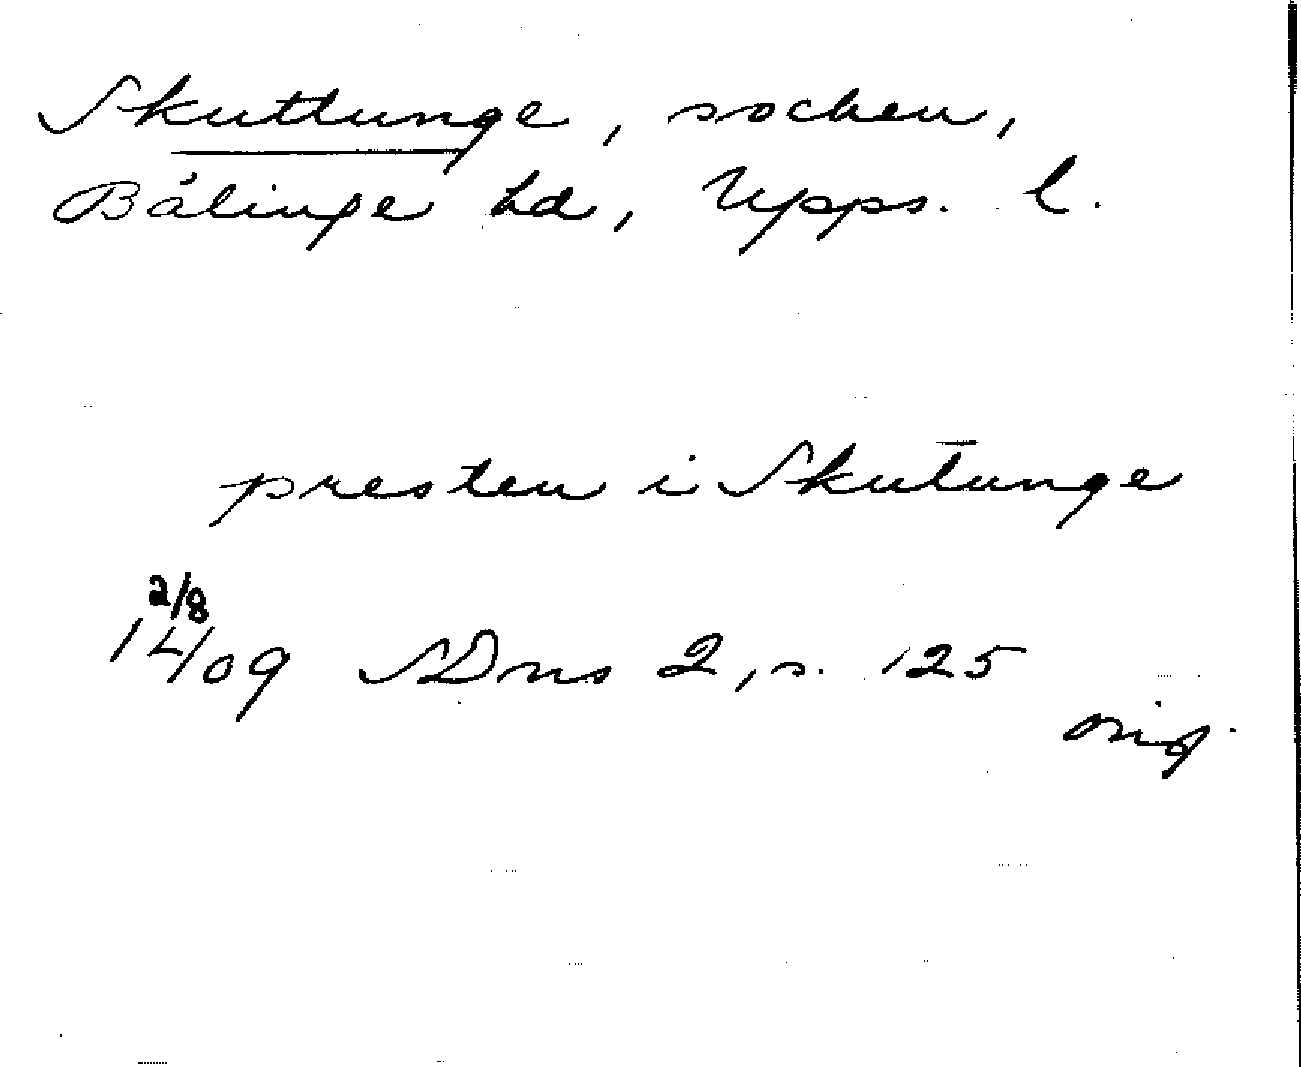 Skuttunge, socken,
Bälinge hd, Upps. l.
presten i Skut̄unge
2/8
1409 SDns 2, s. 125
orig.